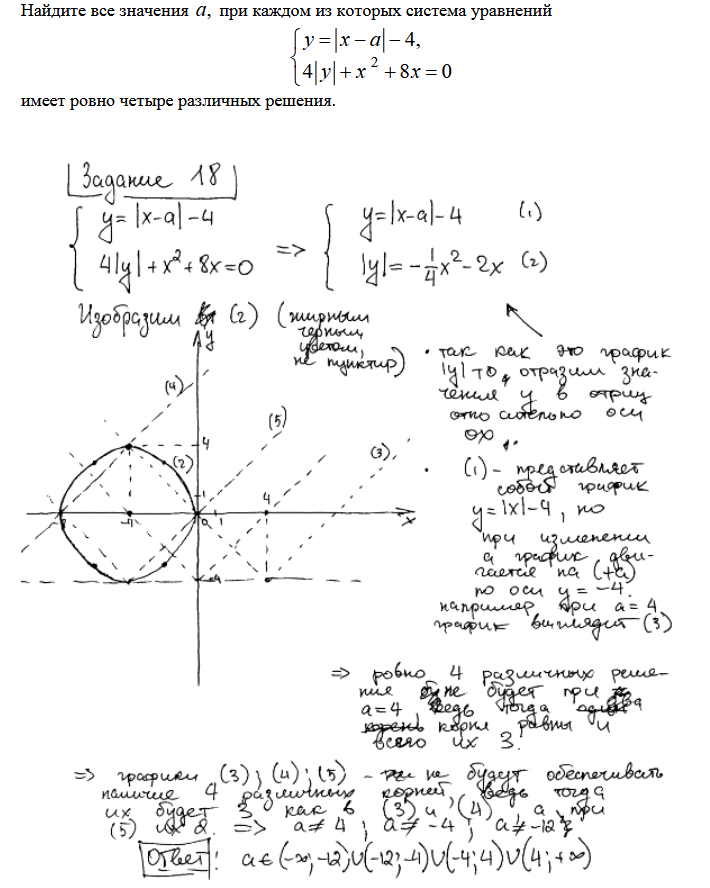 Найдите все значения a, при каждом из которых система уравнений
{ y = |x − a| − 4,
4|y| + x² + 8x = 0
имеет ровно четыре различных решения.
Задание 18
{ y = |x-a| - 4 => { y = |x-a| - 4 (1)
4|y| + x² + 8x = 0 |y| = -1/4 x² - 2x (2)
Изобразим (2) (жирным
черным
цветом,
не пунктир)
• так как это график
|y|, то отразим зна-
чения y в отриц
относительно оси
OX
• (1) - представляет
собой график
y = |x| - 4, но
при изменении
a график дви-
гается на (+a)
по оси y = -4.
например при a = 4
график выглядит (3)
y
(4)
(5)
(3)
(2)
4
1
4
-4
0
1
x
-4
=> ровно 4 различных реше-
ние не будет при
a = 4 ведь тогда два
корня равны и
всего их 3.
=> графики (3); (4); (5) - не будут обеспечивать
наличие 4 различных корней, ведь тогда
их будет 3 как в (3) и (4), а при
(5) их 2. => a ≠ 4; a ≠ -4; a ≠ -12
Ответ: a ∈ (-∞; -12) ∪ (-12; -4) ∪ (-4; 4) ∪ (4; +∞)